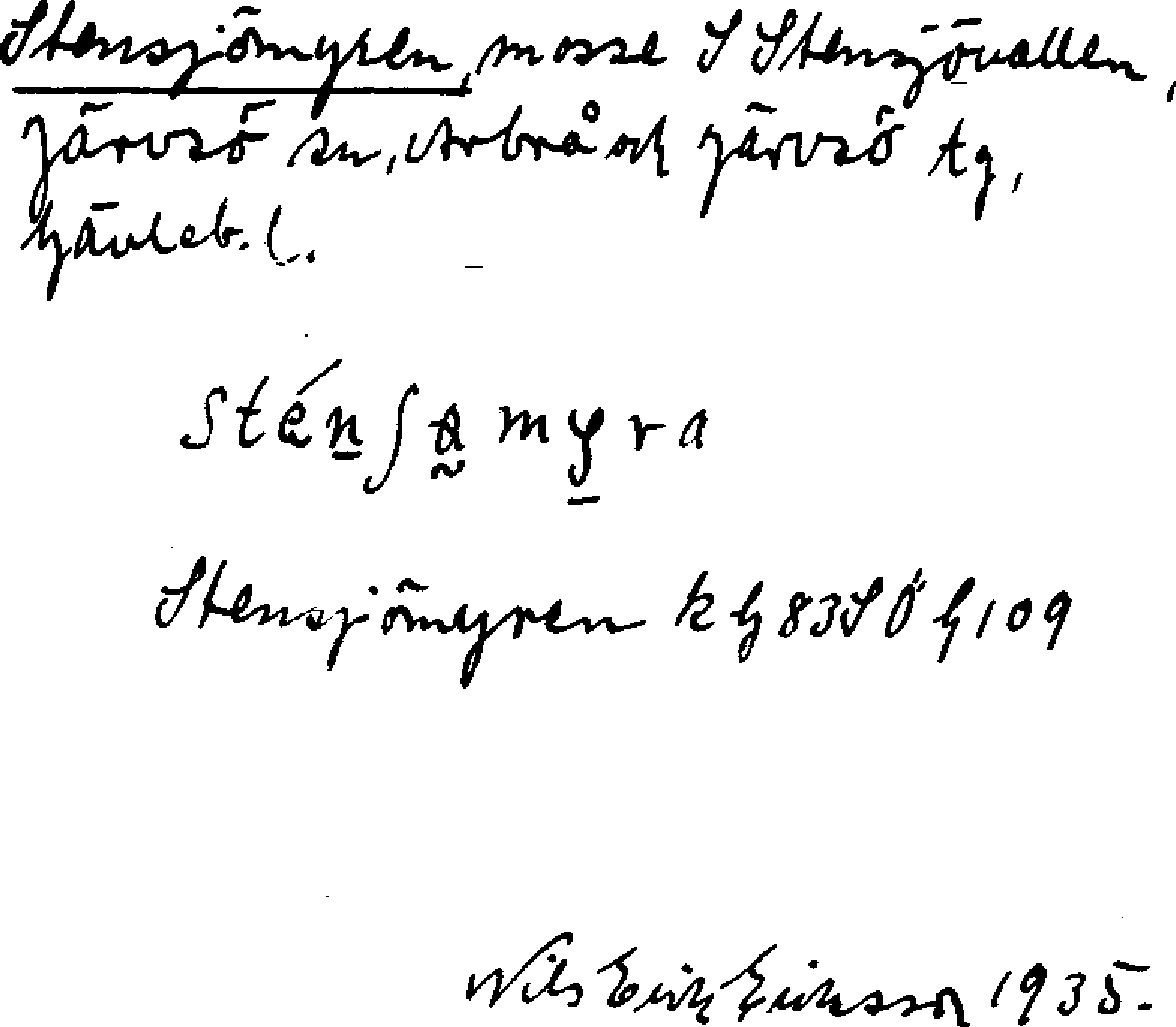 Stensjömyren, mosse S Stensjövallen,
Järvsö sn, Arbrå och Järvsö tg,
Gävleb. l.
Stensjömyren k G 83 S Ö G 109
Nils Erik Eriksson 1935.